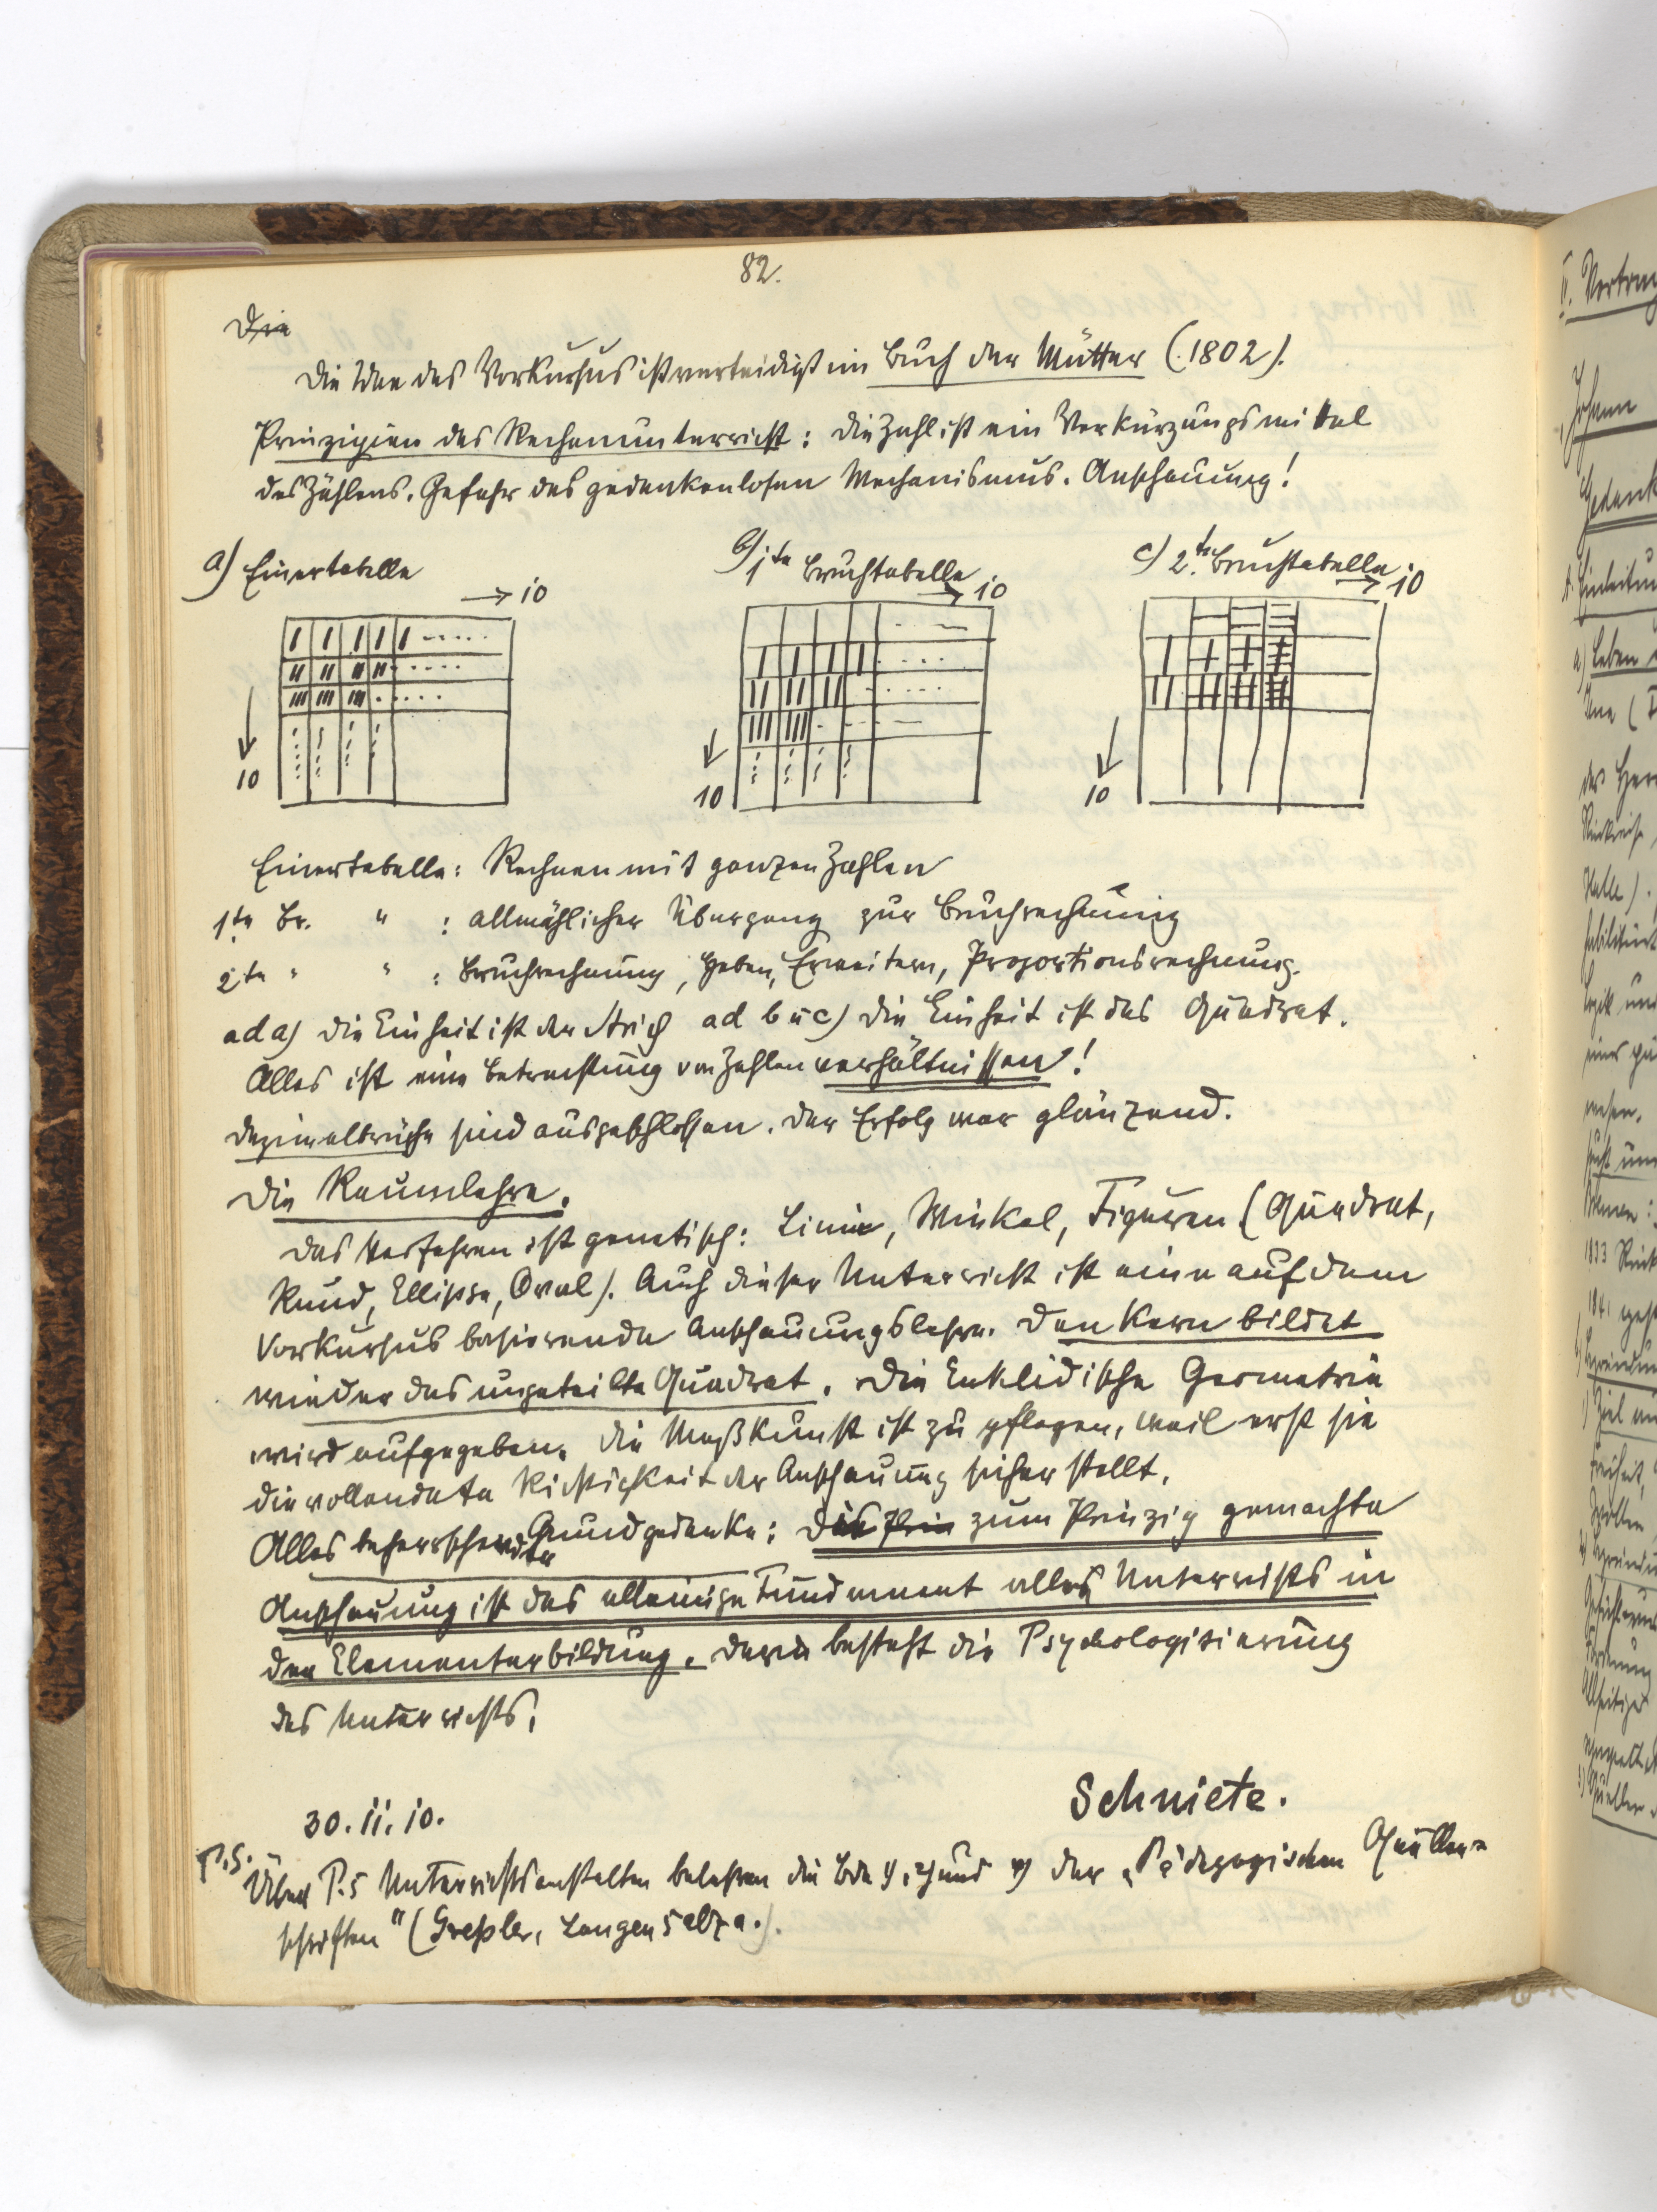 82.
Die
Die Idee des Vorkursus ist verteidigt im Buch der Mütter (1802).
Prinzipien des Rechenunterricht: Die Zahl ist ein Verkürzungsmittel
des Zählens. Gefahr des gedankenlosen Mechanismus. Anschauung!
a) Einertabelle
b) 1te Bruchtabelle
c) 2te Bruchtabelle.
→ 10
→ 10
→ 10
10
10
10
Einertabelle: Rechnen mit ganzen Zahlen
1te Br. " : allmählicher Übergang zur Bruchrechnung
2te " " : Bruchrechnung, Heben, Erweitern, Proportionsrechnung.
ad a) Die Einheit ist der Strich ad b u c) Die Einheit ist das Quadrat.
Alles ist eine Betrachtung von Zahlenverhältnissen!
Dezimalbrüche sind ausgeschlossen. Der Erfolg war glänzend.
Die Raumlehre.
Das Verfahren ist genetisch: Linie, Winkel, Figuren (Quadrat,
Rund, Ellipse, Oval). Auch dieser Unterricht ist eine auf dem
Vorkursus basierende Anschauungslehre. Den Kern bildet
wieder das ungeteilte Quadrat. Die Euklidische Geometrie
wird aufgegeben. Die Meßkunst ist zu pflegen, weil erst sie
die vollendete Richtigkeit der Anschauung sicher stellt.
Alles beherrschender Grundgedanke: Die zum Prinzip gemachte
Anschauung ist das alleinige Fundament alles Unterrichts in
der Elementarbildung. Darin besteht die Psychologisierung
des Unterrichts.
30. 11. 10.
Schniete.
P.S.
Über P.s Unterrichtsanstalten belehren die Bde und der „Pädagogischen Quellen=
schriften" (Greßler, Langensalza.).
II. Vortrag
Johann
Gedank
Einleitun
a) Leben
Jena (
Halle).
1833
1841